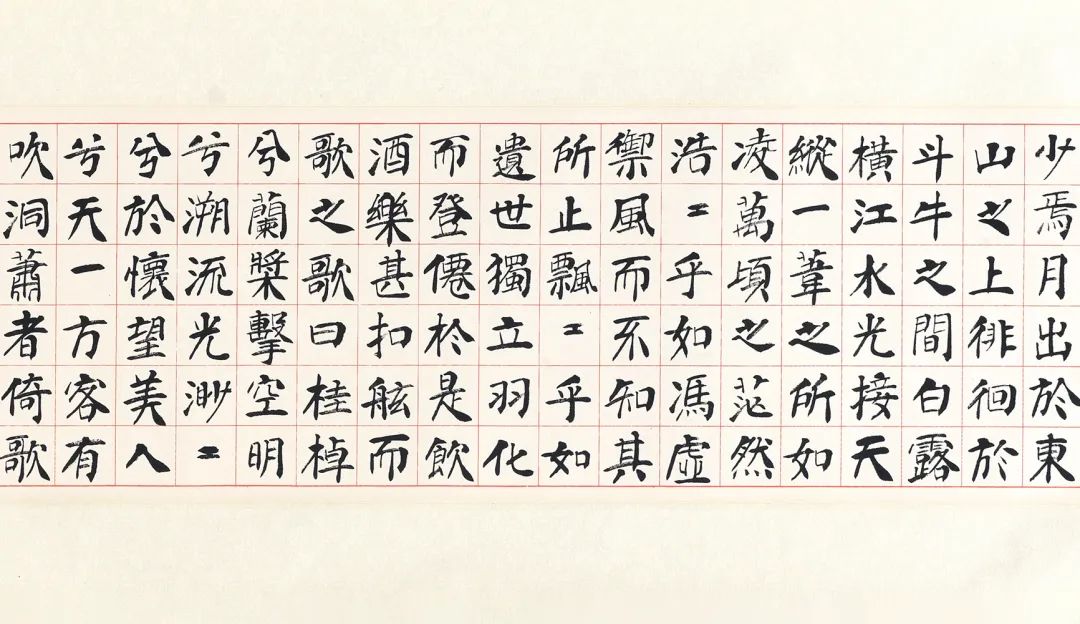 少焉月出於東
山之上徘徊於
斗牛之間白露
橫江水光接天
縱一葦之所如
凌萬頃之茫然
浩〻乎如馮虛
禦風而不知其
所止飄〻乎如
遺世獨立羽化
而登僊於是飲
酒樂甚扣舷而
歌之歌曰桂棹
兮蘭槳擊空明
兮溯流光渺〻
兮於懷望美人
兮天一方客有
吹洞蕭者倚歌